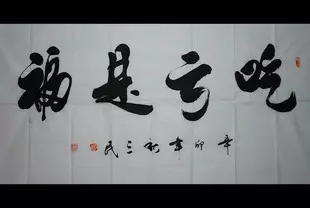 吃亏是福
辛卯年新三民